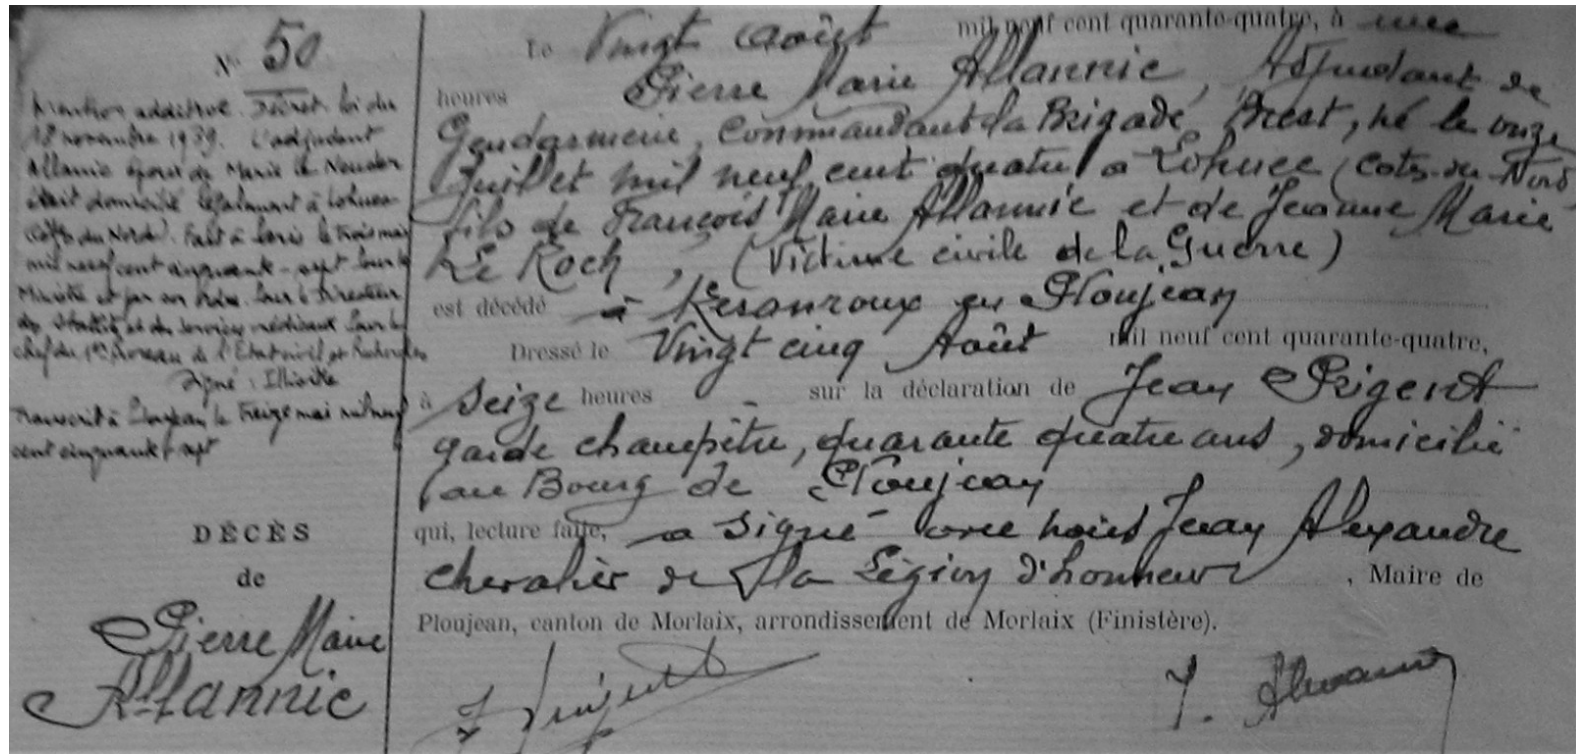 N° 50
Mention additive. Décret loi du
18 novembre 1939. L'adjudant
Allanic époux de Marie Le Neuder
était domicilié légalement à Lohuec
(Côtes du Nord). Fait à Paris le trois mai
mil neuf cent cinquante-sept Pour le
Ministre et par son ordre. Pour le Directeur
des Statuts et des Services médicaux Pour le
chef du 1er Bureau de l'Etat civil et Recherches
Signé :
Transcrit à Ploujean le treize mai mil neuf
cent cinquante sept
DÉCÈS
de
Pierre Marie
Allannic
Le Vingt août mil neuf cent quarante-quatre, à une
heures Pierre Marie Allannic, Adjudant de
Gendarmerie, Commandant la Brigade Brest, né le onze
Juillet mil neuf cent quatre à Lohuec (Cotes-du-Nord)
fils de François Marie Allannic et de Jeanne Marie
Le Roch, (Victime civile de la Guerre)
est décédé à Kersanroux en Ploujean
Dressé le Vingt cinq Août mil neuf cent quarante-quatre,
à Seize heures - sur la déclaration de Jean Prigent
garde champêtre, quarante quatre ans, domicilié
au Bourg de Ploujean
qui, lecture faite, a signé avec nous Jean Alexandre
Chevalier de la Légion d'honneur, Maire de
Ploujean, canton de Morlaix, arrondissement de Morlaix (Finistère).
J Prigent J. Alexandre